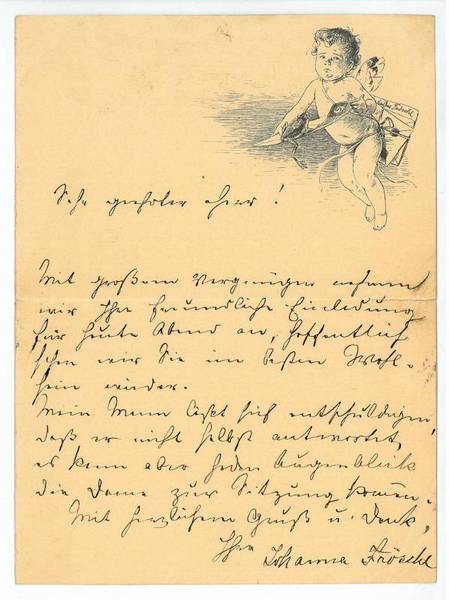 Sehr geehrter Herr!
Mit großem Vergnügen nehmen
wir Ihre freundliche Einladung
für heute Abend an, hoffentlich
sehen wir Sie im besten Wohl-
sein wieder.
Mein Mann läßt sich entschuldigen,
daß er nicht selbst antwortet,
es kann aber jeden Augenblick
die Dame zur Sitzung komen.
Mit herzlichem Gruß u. Dank,
Ihre Johanna Fröschl